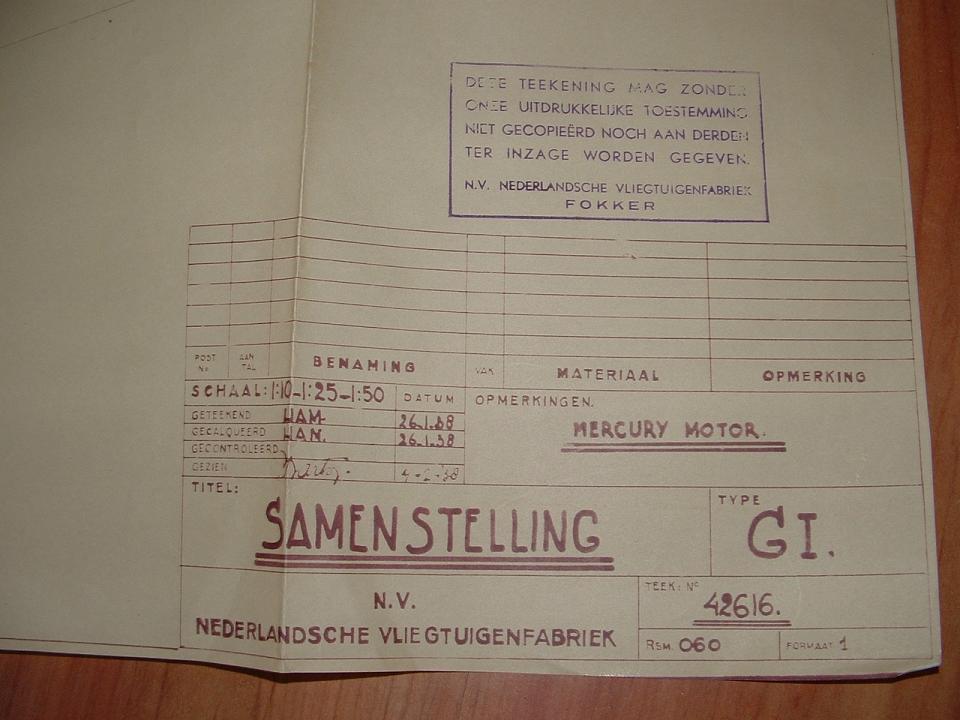 DEZE TEEKENING MAG ZONDER
ONZE UITDRUKKELIJKE TOESTEMMING
NIET GECOPIEËRD NOCH AAN DERDEN
TER INZAGE WORDEN GEGEVEN.
N.V. NEDERLANDSCHE VLIEGTUIGENFABRIEK
FOKKER
POST No AAN TAL BENAMING VAK MATERIAAL OPMERKING
SCHAAL: 1:10-1:25-1:50 DATUM
OPMERKINGEN.
GETEEKEND HAM. 26.1.38
GECALQUEERD HAN. 26.1.38
MERCURY MOTOR.
GECONTROLEERD
GEZIEN 4-2-38
TITEL:
SAMENSTELLING
TYPE
GI.
N.V.
NEDERLANDSCHE VLIEGTUIGENFABRIEK
TEEK: No
42616.
RSM. 060 FORMAAT 1